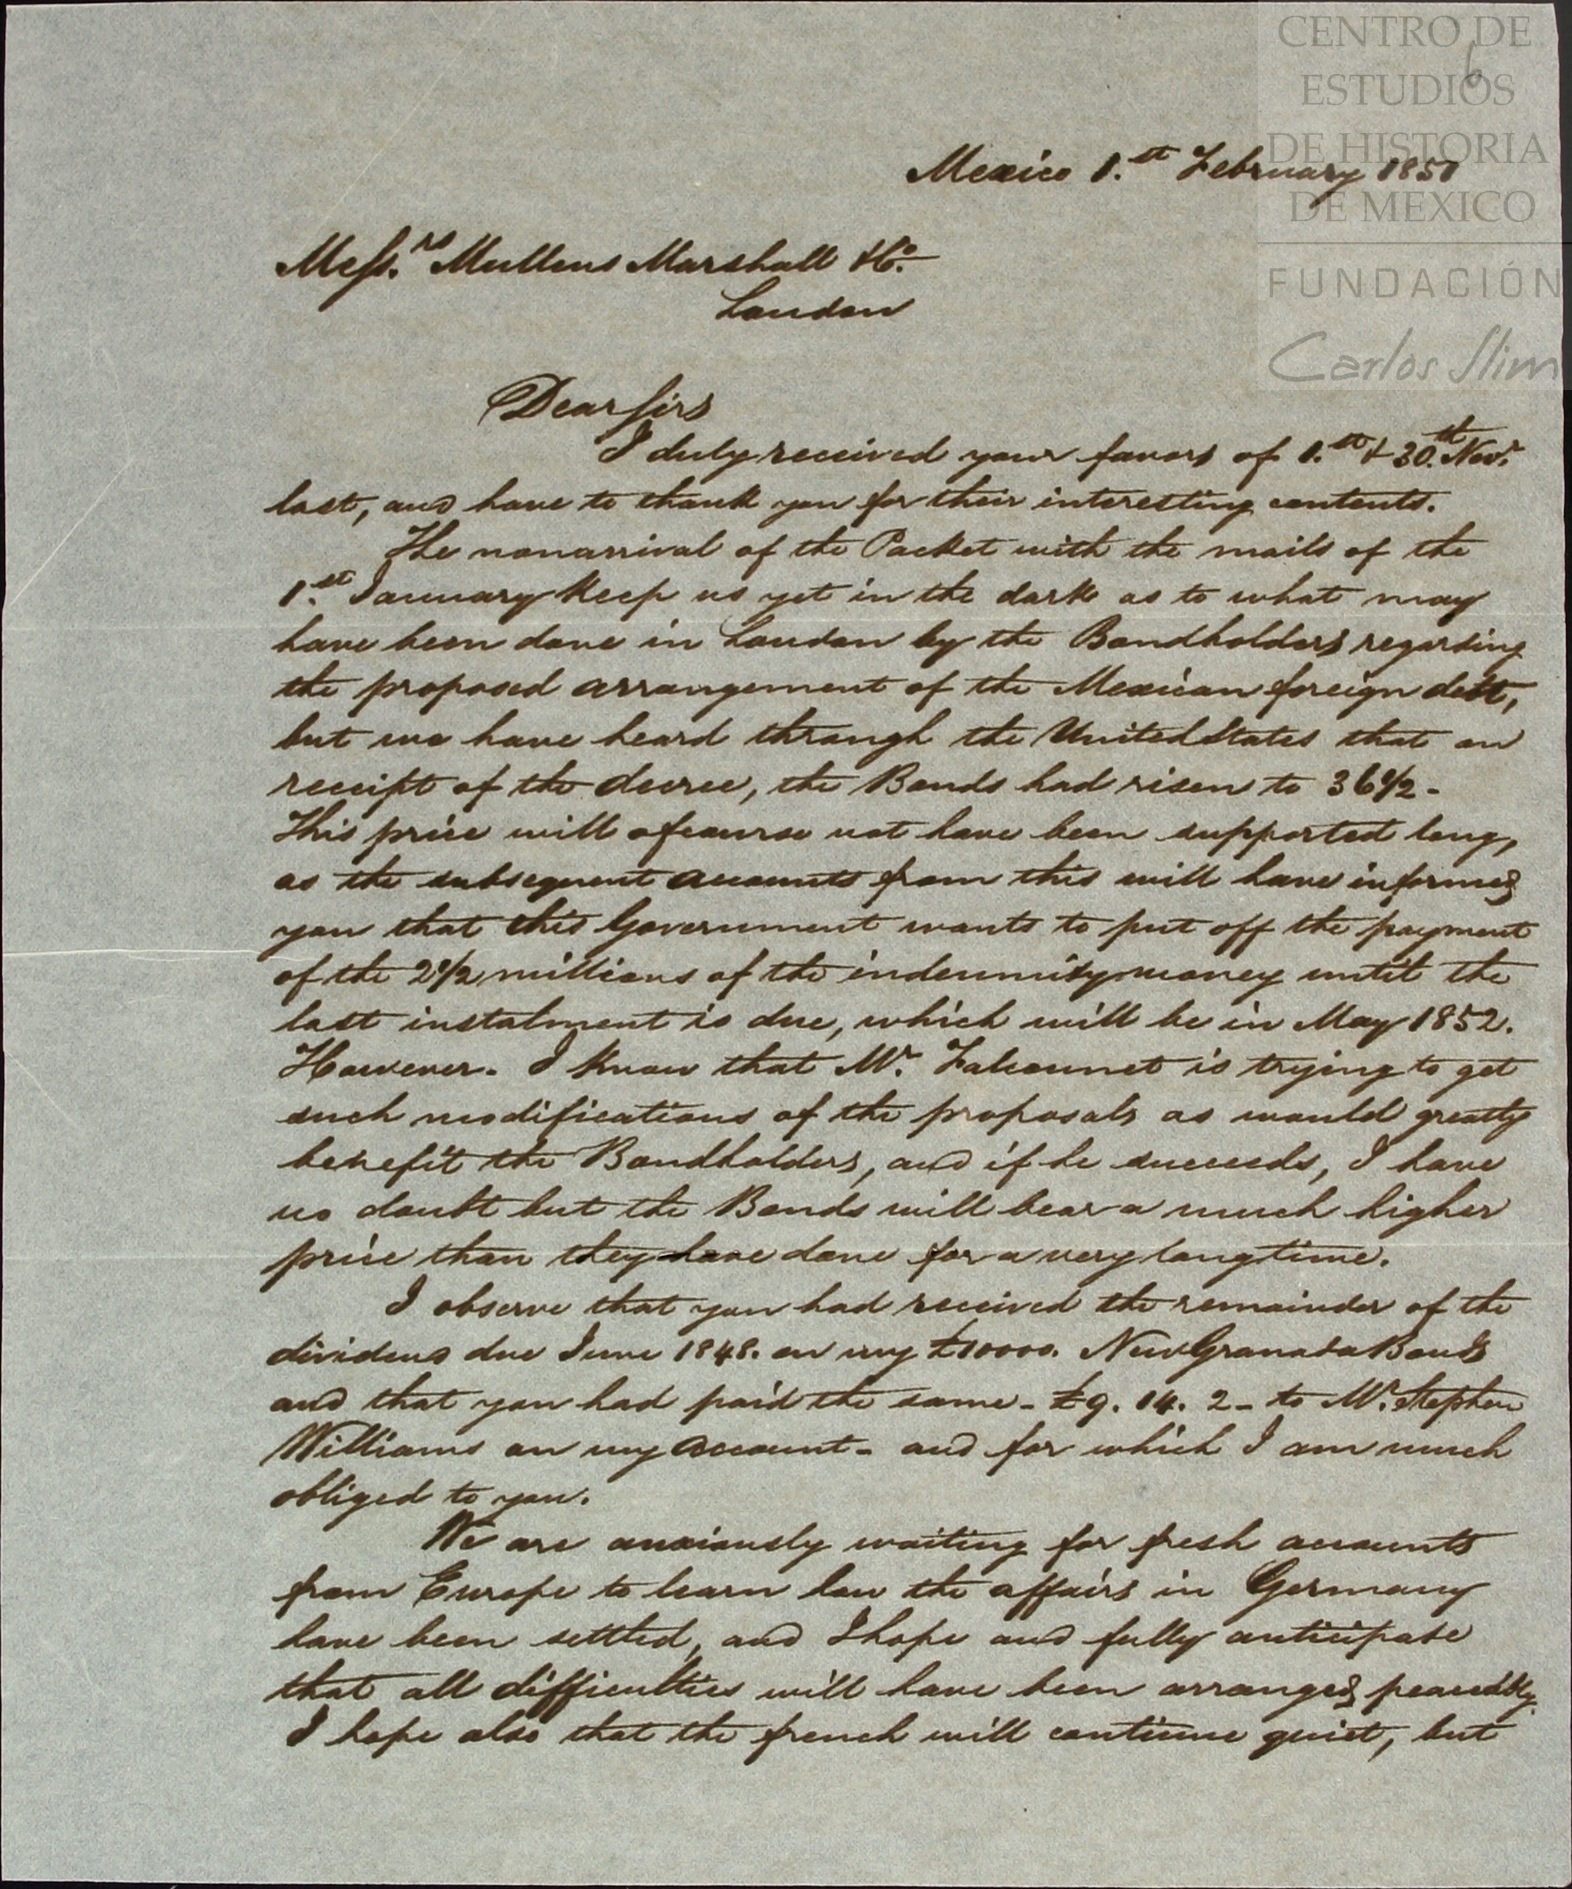 CENTRO DE
ESTUDIOS
DE HISTORIA
DE MEXICO
FUNDACIÓN
Carlos Slim
6
Mexico 1.st February 1851
Messrs. Mullens Marshall & Co.
London
Dear Sirs
I duly received your favors of 1.st & 30.th Novr.
last, and have to thank you for their interesting contents.
The nonarrival of the Packet with the mails of the
1.st January keep us yet in the dark as to what may
have been done in London by the Bondholders regarding
the proposed arrangement of the Mexican foreign debt,
but we have heard through the United States that on
receipt of the decree, the Bonds had risen to 36 1/2 -
This price will ofcourse not have been supported long,
as the subsequent accounts from this will have informed
you that this Government wants to put off the payment
of the 2 1/2 millions of the indemnity money until the
last instalment is due, which will be in May 1852.
However. I know that Mr. Falconnet is trying to get
such modifications of the proposals as would greatly
benefit the Bondholders, and if he succeeds, I have
no doubt but the Bonds will bear a much higher
price than they have done for a very long time.
I observe that you had received the remainder of the
dividend due June 1848. on my £10000. New Granada Bonds
and that you had paid the same - £9. 14. 2 - to Mr. Stephen
Williams on my account - and for which I am much
obliged to you.
We are anxiously waiting for fresh accounts
from Europe to learn how the affairs in Germany
have been settled, and I hope and fully anticipate
that all difficulties will have been arranged peaceably.
I hope also that the french will continue quiet, but